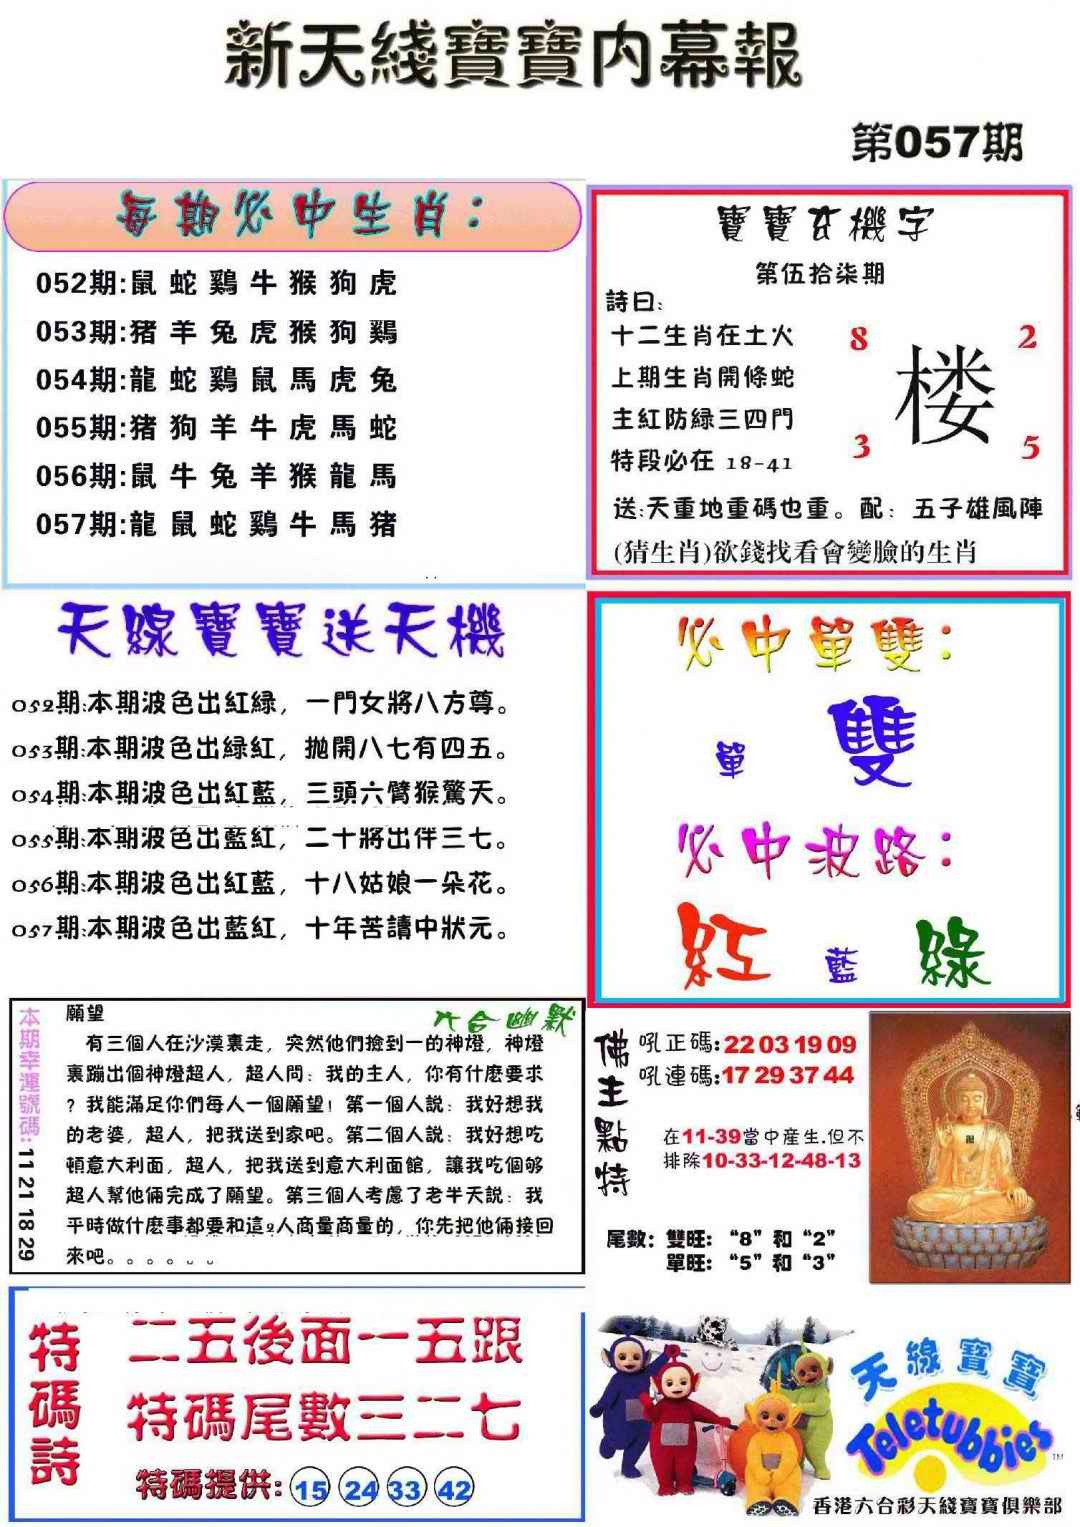 新天綫寶寶内幕報
第057期
每期必中生肖：
052期:鼠 蛇 鷄 牛 猴 狗 虎
053期:猪 羊 兔 虎 猴 狗 鷄
054期:龍 蛇 鷄 鼠 馬 虎 兔
055期:猪 狗 羊 牛 虎 馬 蛇
056期:鼠 牛 兔 羊 猴 龍 馬
057期:龍 鼠 蛇 鷄 牛 馬 猪
寶寶玄機字
第伍拾柒期
詩曰:
十二生肖在土火
上期生肖開條蛇
主紅防緑三四門
特段必在 18-41
8 2
楼
3 5
送:天重地重碼也重。配: 五子雄風陣
(猜生肖)欲錢找看會變臉的生肖
天線寶寶送天機
052期:本期波色出紅緑, 一門女將八方尊。
053期:本期波色出緑紅, 抛開八七有四五。
054期:本期波色出紅藍, 三頭六臂猴驚天。
055期:本期波色出藍紅, 二十將出伴三七。
056期:本期波色出紅藍, 十八姑娘一朵花。
057期:本期波色出藍紅, 十年苦讀中狀元。
必中單雙：
單 雙
必中波路：
紅 藍 綠
本期幸運號碼: 11 21 18 29
願望
六合幽默
有三個人在沙漠裏走, 突然他們撿到一的神燈, 神燈
裏蹦出個神燈超人, 超人問: 我的主人, 你有什麽要求
? 我能滿足你們每人一個願望! 第一個人説: 我好想我
的老婆, 超人, 把我送到家吧。第二個人説: 我好想吃
頓意大利面, 超人, 把我送到意大利面館, 讓我吃個够
超人幫他倆完成了願望。第三個人考慮了老半天説: 我
平時做什麽事都要和這2人商量商量的, 你先把他倆接回
來吧。。。。。。
佛主點特
吼正碼: 22 03 19 09
吼連碼: 17 29 37 44
在11-39當中産生.但不
排除10-33-12-48-13
尾數: 雙旺: “8”和“2”
單旺: “5”和“3”
特碼詩
二五後面一五跟
特碼尾數三二七
特碼提供: 15 24 33 42
天線寶寶
Teletubbies
TM
香港六合彩天綫寶寶俱樂部